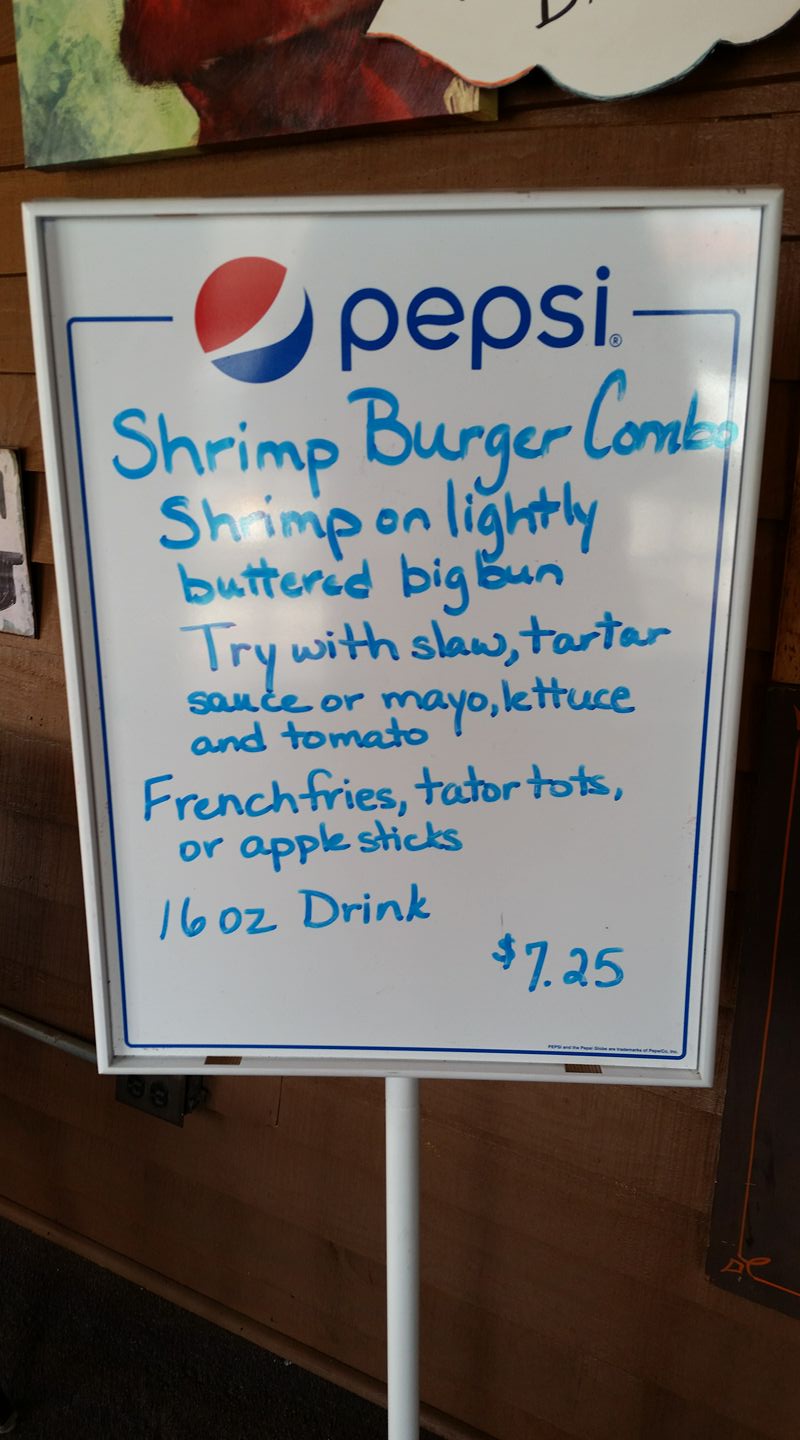 pepsi®
Shrimp Burger Combo
Shrimp on lightly
buttered big bun
Try with slaw, tartar
sauce or mayo, lettuce
and tomato
French fries, tator tots,
or apple sticks
16 oz Drink
$7.25
PEPSI and the Pepsi Globe are trademarks of PepsiCo, Inc.